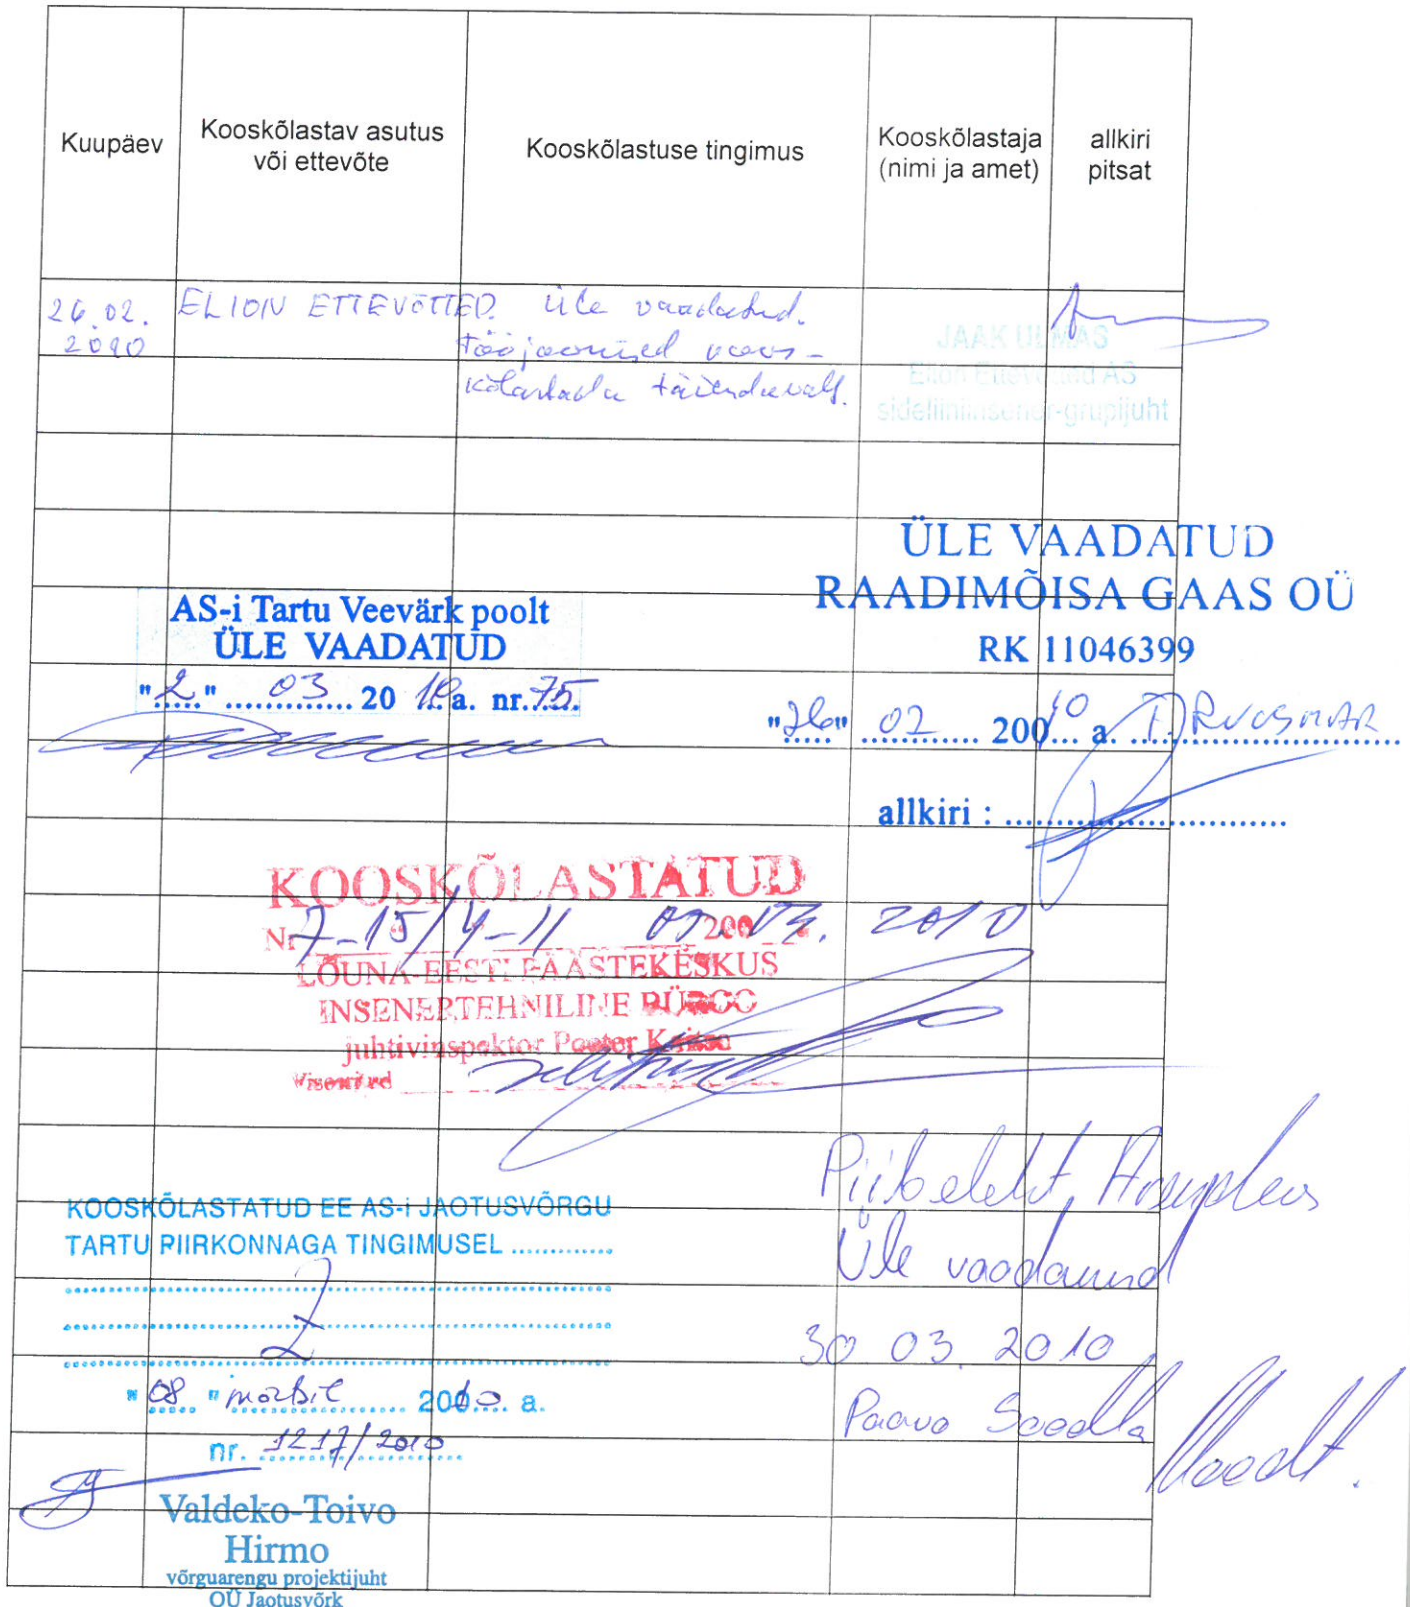 Kuupäev
Kooskõlastav asutus
või ettevõte
Kooskõlastuse tingimus
Kooskõlastaja
(nimi ja amet)
allkiri
pitsat
26.02.
2010
ELION ETTEVÕTTED.
üle vaadatud.
tööjoonised koos-
kõlastada täiendavalt.
JAAK ULMAS
Elion Ettevõtted AS
sideliiniinsener-grupijuht
ÜLE VAADATUD
RAADIMÕISA GAAS OÜ
RK 11046399
"26" 02 2010 a.
allkiri :
AS-i Tartu Veevärk poolt
ÜLE VAADATUD
"2" 03 2010 a. nr. 75
KOOSKÕLASTATUD
Nr 7-15/4-11 09.03. 2010
LÕUNA-EESTI PÄÄSTEKESKUS
INSENERTEHNILINE BÜROO
juhtivinspektor Peeter
KOOSKÕLASTATUD EE AS-i JAOTUSVÕRGU
TARTU PIIRKONNAGA TINGIMUSEL
"08" märts 2010 a.
nr. 1217/2010
Valdeko-Toivo
Hirmo
võrguarengu projektijuht
OÜ Jaotusvõrk
Piibeleht,
Üle vaadanud
30 03. 2010
Paavo